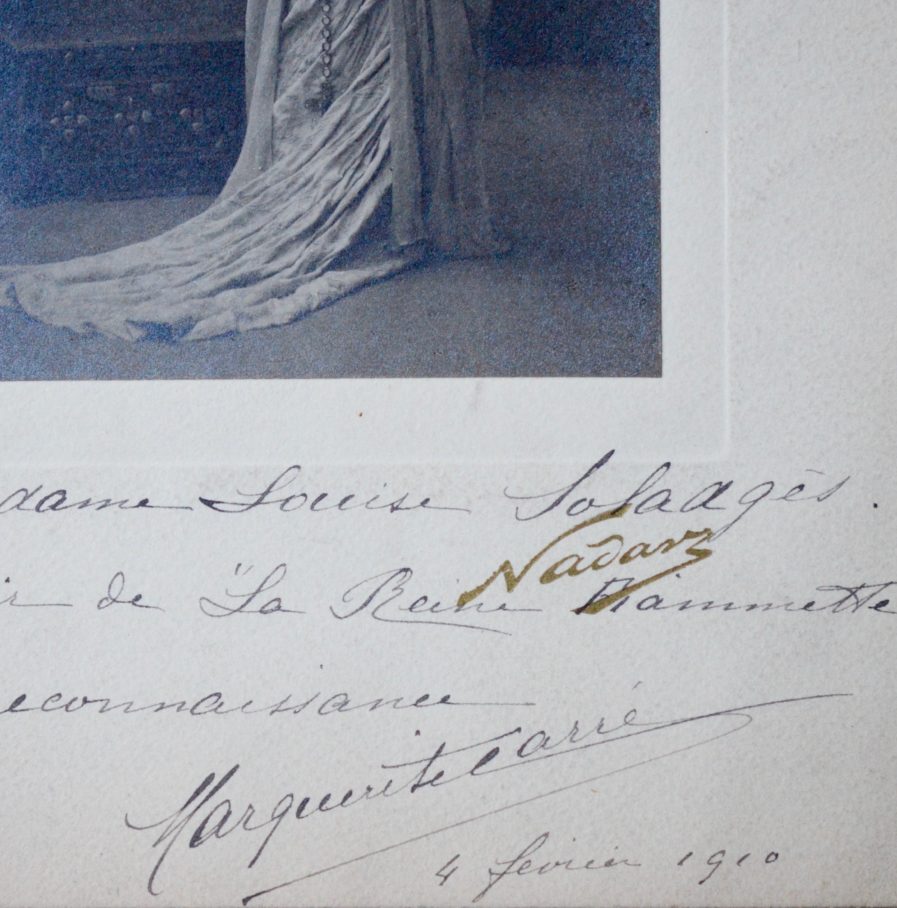 dame Louise Soladgès.
Nadar
ir de "La Reine Fiammette
econnaissance
Marguerite Carré
4 février 1910